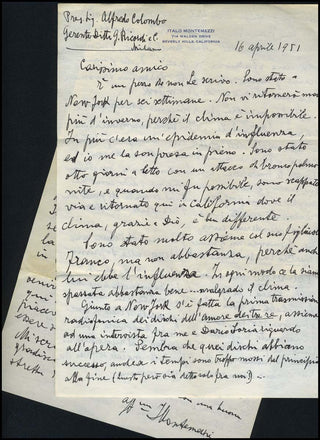 Preg. Sig. Alfredo Colombo
Gerente Ditta G. Ricordi e C.
Milano
ITALO MONTEMEZZI
716 WALDEN DRIVE
BEVERLY HILLS, CALIFORNIA
16 aprile 1951
Carissimo amico
È un pezzo che non Le scrivo. Sono stato a
New York per sei settimane. Non vi ritornerò mai
più d'inverno, perchè il clima è impossibile.
In più c'era un'epidemia d'influenza,
ed io me la son presa in pieno. Sono stato
otto giorni a letto con un attacco di bronco polmo
nite, e quando mi fu possibile, sono scappato
via e ritornato qui in California dove il
clima, grazie a Dio, è ben differente.
Sono stato molto assieme col suo figliolo
Franco, ma non abbastanza, perchè anche
lui ebbe l'influenza. In ogni modo ce la siamo
spassata abbastanza bene ... malgrado il clima.
Giunto a New York s'è fatta la prima trasmissione
radiofonica dei dischi dell'amore dei tre re, assieme
ad una intervista fra me e Dario Soria riguardo
all'opera. Sembra che quei dischi abbiano
successo, anche se i tempi sono troppo mossi dal principio
alla fine (questo però sia detto solo fra noi) —.
una buona
aff. Montemezzi